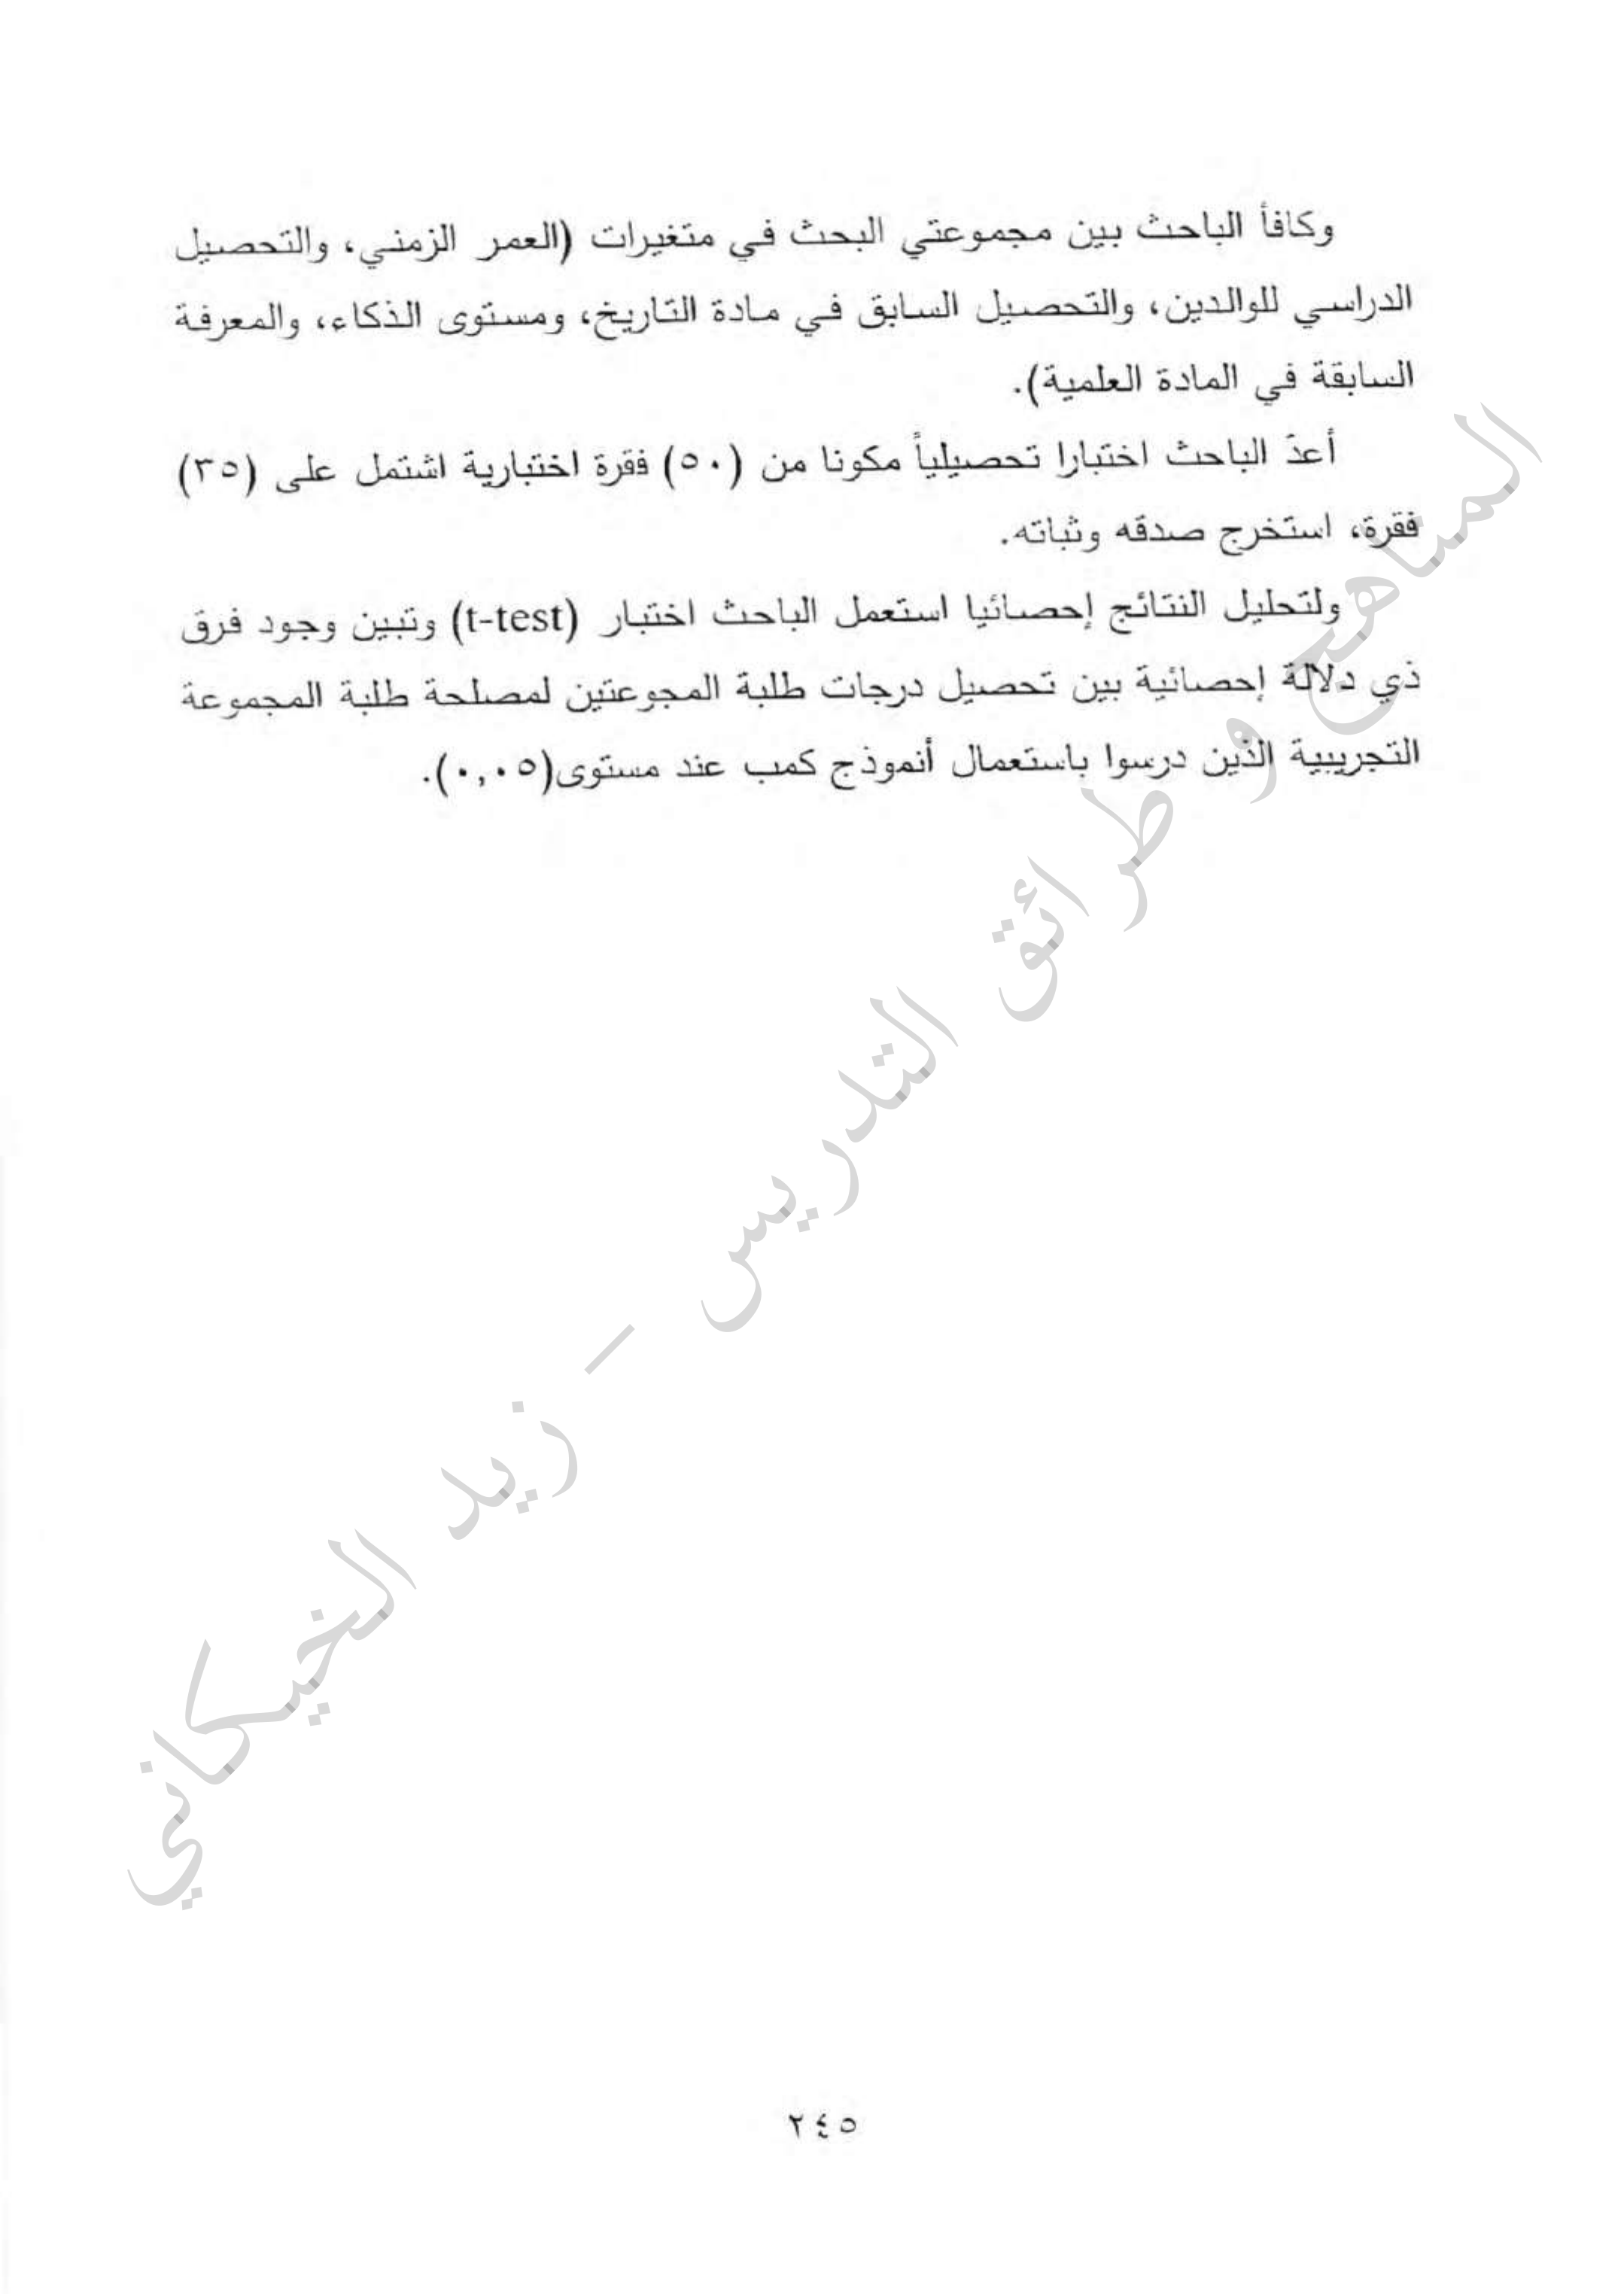 وكافأ الباحث بين مجموعتي البحث في متغيرات (العمر الزمني، والتحصيل
الدراسي للوالدين، والتحصيل السابق في مادة التاريخ، ومستوى الذكاء، والمعرفة
السابقة في المادة العلمية).
أعدّ الباحث اختبارا تحصيلياً مكونا من (٥٠) فقرة اختبارية اشتمل على (٣٥)
فقرة، استخرج صدقه وثباته.
ولتحليل النتائج إحصائيا استعمل الباحث اختبار (t-test) وتبين وجود فرق
ذي دلالة إحصائية بين تحصيل درجات طلبة المجوعتين لمصلحة طلبة المجموعة
التجريبية الذين درسوا باستعمال أنموذج كمب عند مستوى(٠,٠٥).
المناهج و طرائق التدريس – زيد الخيكاني
٢٤٥